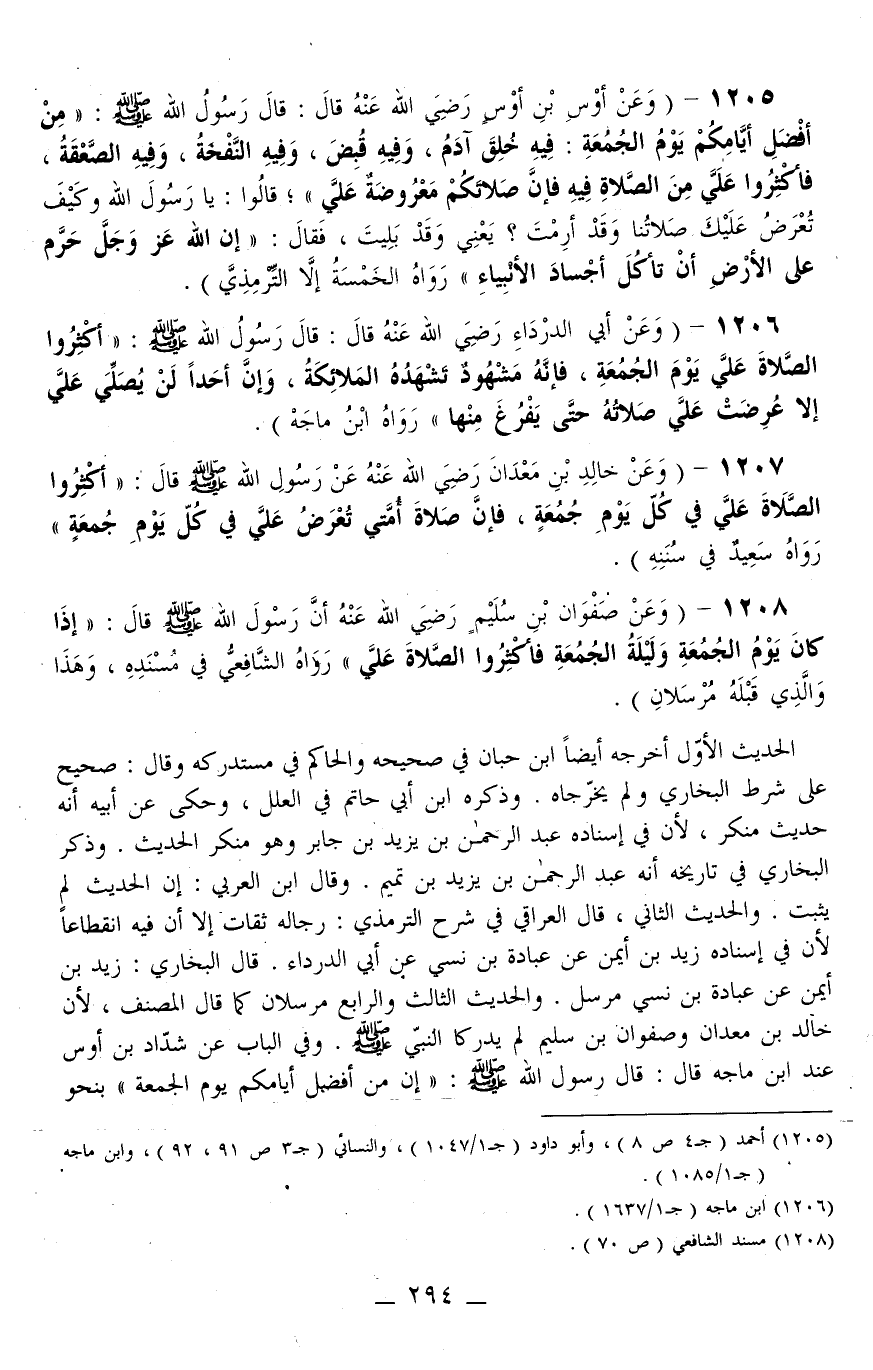 ١٢٠٥ – ( وَعَنْ أوْسِ بْنِ أوْسٍ رَضِيَ الله عَنْهُ قالَ : قالَ رَسُولُ الله ﷺ : « مِنْ
أفْضَلِ أيَّامِكُمْ يَوْمُ الجُمُعَةِ : فِيهِ خُلِقَ آدَمُ ، وَفِيهِ قُبِضَ ، وَفِيهِ النَّفْخةُ ، وَفِيهِ الصَّعْقَةُ ،
فأكْثِرُوا عَلَيَّ مِنَ الصَّلاةِ فِيهِ فإنَّ صَلاتَكمْ مَعْرُوضَةٌ عَليَّ » ؛ قالُوا : يا رَسُولَ الله وكَيْفَ
تُعْرَضُ عَلَيْكَ صَلاتُنا وَقَدْ أرِمْتَ ؟ يَعْنِي وَقَدْ بَلِيتَ ، فَقالَ : « إن الله عَز وَجَلَّ حَرَّم
على الأرْضِ أنْ تأكُلَ أجْسادَ الأنْبِياءِ » رَوَاهُ الخَمْسَةُ إلَّا التِّرْمِذِيَّ ) .
١٢٠٦ – ( وَعَنْ أبي الدرْدَاءِ رَضِيَ الله عَنْهُ قالَ : قالَ رَسُولُ الله ﷺ : « أكْثِرُوا
الصَّلاةَ عَليَّ يَوْمَ الجُمُعَةِ ، فإنَّهُ مَشْهُودٌ تَشْهَدُهُ المَلائِكَةُ ، وَإنَّ أحَداً لَنْ يُصَلِّيَ عَليَّ
إلا عُرِضَتْ عَليَّ صَلاتُهُ حتَّى يَفْرُغَ مِنْها » رَوَاهُ ابْنُ ماجَهْ ) .
١٢٠٧ – ( وَعَنْ خالِدِ بْنِ مَعْدَانَ رَضِيَ الله عَنْهُ عَنْ رَسُولِ الله ﷺ قالَ : « أكْثِرُوا
الصَّلَاةَ عَليَّ في كُلّ يَوْمِ جُمُعَةٍ ، فإنَّ صَلاةَ أُمَّتي تُعْرَضُ عَليَّ في كُلّ يَوْمِ جُمعَةٍ »
رَوَاهُ سَعِيدٌ في سُنَنِهِ ) .
١٢٠٨ – ( وَعَنْ صَفْوَان بْنِ سُلَيْمٍ رَضِيَ الله عَنْهُ أنَّ رَسْولَ الله ﷺ قالَ : « إذَا
كانَ يَوْمُ الجُمُعَةِ وَلَيْلَةُ الجُمُعَةِ فأكْثِرُوا الصَّلاةَ عَليَّ » رَوَاهُ الشَّافِعيُّ في مُسْنَدِهِ ، وَهَذَا
وَالَّذِي قَبْلَهُ مُرْسَلانِ ) .
الحديث الأوّل أخرجه أيضاً ابن حبان في صحيحه والحاكم في مستدركه وقال : صحيح
على شرط البخاري ولم يخرّجاه . وذكره ابن أبي حاتم في العلل ، وحكى عن أبيه أنه
حديث منكر ، لأن في إسناده عبد الرحمٰن بن يزيد بن جابر وهو منكر الحديث . وذكر
البخاري في تاريخه أنه عبد الرحمٰن بن يزيد بن تميم . وقال ابن العربي : إن الحديث لم
يثبت . والحديث الثاني ، قال العراقي في شرح الترمذي : رجاله ثقات إلا أن فيه انقطاعاً
لأن في إسناده زيد بن أيمن عن عبادة بن نسي عن أبي الدرداء . قال البخاري : زيد بن
أيمن عن عبادة بن نسي مرسل . والحديث الثالث والرابع مرسلان كما قال المصنف ، لأن
خالد بن معدان وصفوان بن سليم لم يدركا النبيّ ﷺ . وفي الباب عن شدّاد بن أوس
عند ابن ماجه قال : قال رسول الله ﷺ : « إن من أفضل أيامكم يوم الجمعة » بنحو
(١٢٠٥) أحمد ( جـ٤ ص ٨ ) ، وأبو داود ( جـ١٠٤٧/١ ) ، والنسائي ( جـ٣ ص ٩١ ، ٩٢ ) ، وابن ماجه
( جـ١٠٨٥/١ ) .
(١٢٠٦) ابن ماجه ( جـ١٦٣٧/١ ) .
(١٢٠٨) مسند الشافعي ( ص ٧٠ ) .
– ٢٩٤ –